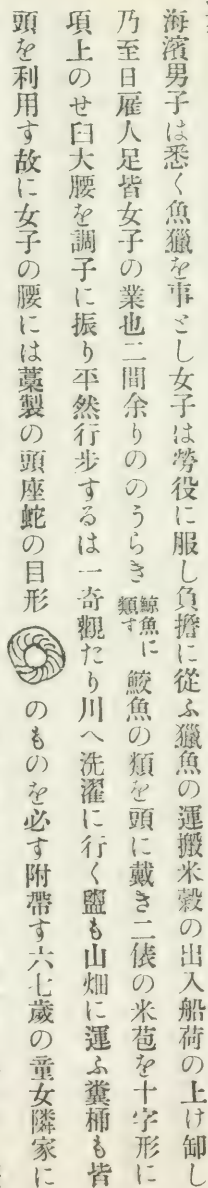 海濱男子は悉く魚獵を事とし女子は勞役に服し負擔に從ふ獵魚の運搬米穀の出入船荷の上け卸し
乃至日雇人足皆女子の業也二間余りののうらき鯨魚に類す鮫魚の類を頭に戴き二俵の米苞を十字形に
項上のせ臼大腰を調子に振り平然行步するは一奇觀たり川へ洗濯に行く盥も山畑に運ふ糞桶も皆
頭を利用す故に女子の腰には藁製の頭座蛇の目形のものを必す附帶す六七歲の童女隣家に